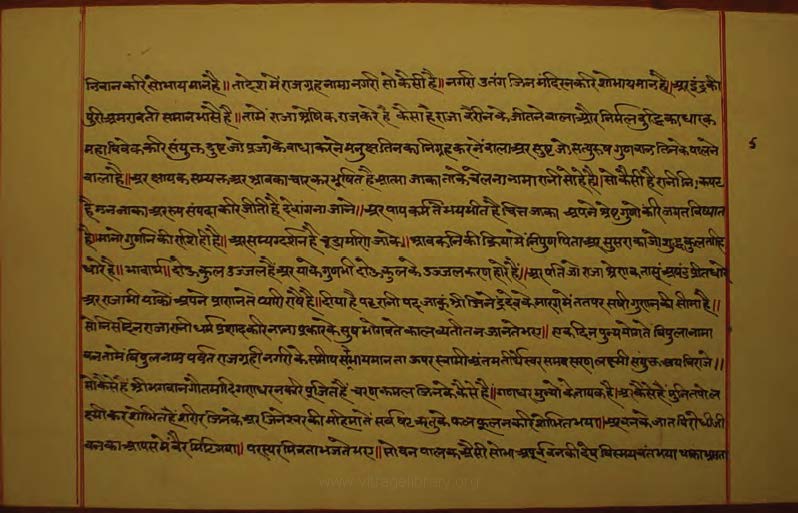 निवान करि सोभायमान है॥ ता देश में राजग्रह नामा नगरी सो कैसी है॥ नगरी उतंग जिन मंदिरन करि शोभायमान है। अर इंद्र की
पुरी अमरावती समान भासै है॥ तामें राजा श्रेणिक राज करे है कैसा है राजा वैरीन के जीतने वाला और निर्मल बुद्धि का धारक
महा विवेक करि संयुक्त दुष्ट जो प्रजा के बाधा करने मनुष्य तिन का निग्रह करनें वाला अर सुष्ट जो सत्पुरुष गुणवान तिन के पालने
वाला है॥ अर क्षायक सम्यक्त अर श्रावका चार कर भूषित है आत्मा जाका ताके चेलना नामा रानी सोहै है॥ सो कैसी है रानी निःकपट
है मन जाका अर रूप संपदा करि जीती है देवांगना जाने॥ अर पाप कर्म तै भयभीत है चित्त जाका अपने श्रेष्ट गुणो करि जगत विख्यात
है। मानो गुननि की रासि ही है॥ अर सम्यग्दर्शन है चूडामणि जाके॥ श्रावकनि की क्रिया में निपुण पिता अर सुसरा का जो शुद्ध कुल ताहि
धारे है॥ भावार्थ॥ दोऊ कुल उज्जल है अर याके गुण भी दोऊ कुल के उज्जल करण हारे हैं॥ अर पति जो राजा श्रेणिक तासूं अखंड प्रीत धारे
अर राजा भी याको अपने प्रानन तै प्यारी राषै है॥ दीया है पट रानी पद जाकूं श्री जिनेंद्र देव के मारग में ततपर सर्व गुणन की सीमा है॥
सो निस दिन राजा रानी धर्म प्रशाद करि नाना प्रकार के सुष भोगवते काल व्यतीत न जानते भए॥ एक दिन पुन्य योग तें विपुला नामा
वन तामें विपुल नाम पर्वत राजग्रही नगरी के समीप सोभायमान ता ऊपर स्वामी अंतम तीर्थेस्वर समवसरण लक्ष्मी संयुक्त आय विराजे॥
सो कैसे हैं श्री भगवान गौतमादि गणधरन करि पूजित हैं चरण कमल जिनके कैसे है॥ गणधर मुन्यो के नायक है। अर कैसे हैं मुनि तपो ल
क्ष्मी कर शोभित है शरीर जिनके अर जिनेस्वर की महिमा तें सर्व षट ऋतु के फल फूलन करि शोभित भया॥ अर वन के जात विरोधी जी
वन का आपस में वैर मिटि गया॥ परस्पर मित्रता भजते भए॥ सो वन पालक ऐसी सोभा अपूर्व वन की देष विस्मयवंत भया
5
www.vitragelibrary.org